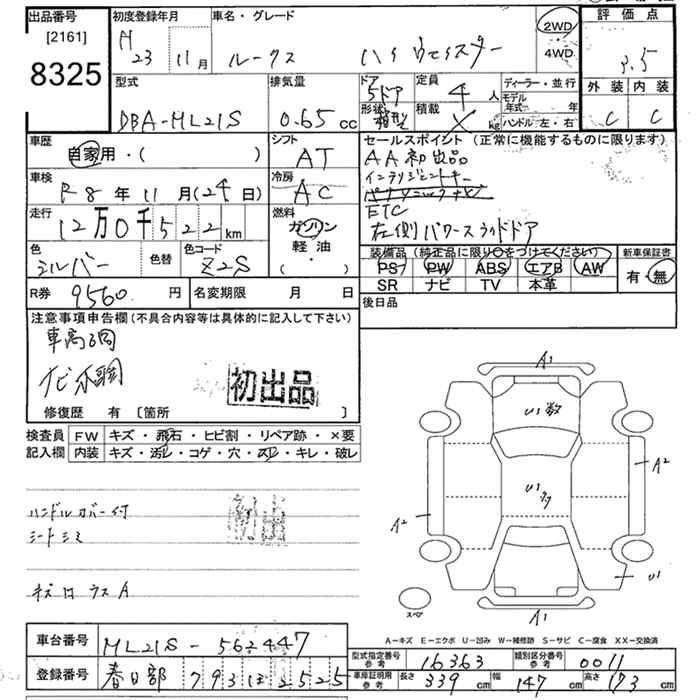 出品番号
[2161]
8325
初度登録年月
H 23 11月
車名・グレード
ルークス ハイウェイスター
2WD
・
4WD
評価点
3.5
外装 内装
C C
型式
DBA-ML21S
排気量
0.65 cc
ドア
5ドア
形状
箱型
定員
4 人
積載
kg
ディーラー・並行
モデル年式 年
ハンドル左・右
車歴
自家用・( )
シフト
AT
セールスポイント(正常に機能するものに限ります)
AA初出品
インテリジェントキー
ETC
左側パワースライドドア
車検
R8年11月(24日)
冷房
AC
走行
12万0千522km
燃料
ガソリン
軽油
( ・ )
色
シルバー
色替
色コード
Z2S
装備品(純正品に限り○をつけてください)
PS PW ABS エアB AW
SR ナビ TV 本革
新車保証書
有・無
R券 9560円
名変期限 月 日
後日品
注意事項申告欄(不具合内容等は具体的に記入して下さい)
車高調
初出品
修復歴 有 [箇所 ]
検査員
記入欄
FW キズ・飛石・ヒビ割・リペア跡・×要
内装 キズ・汚レ・コゲ・穴・スレ・キレ・破レ
ハンドルカバー付
シートシミ
キズ ロ ウス A
A1
U1 数
U1 多
A2
A2
U1
スペア
A1
A-キズ E-エクボ U-凹み W-補修跡 S-サビ C-腐食 XX-交換済
車台番号 ML21S-562447
登録番号 春日部 793 ヒ 2525
型式指定番号
参考
16363
類別区分番号
参考
0011
車庫証明用
参考
長さ 339 cm 幅 147 cm 高さ 173 cm